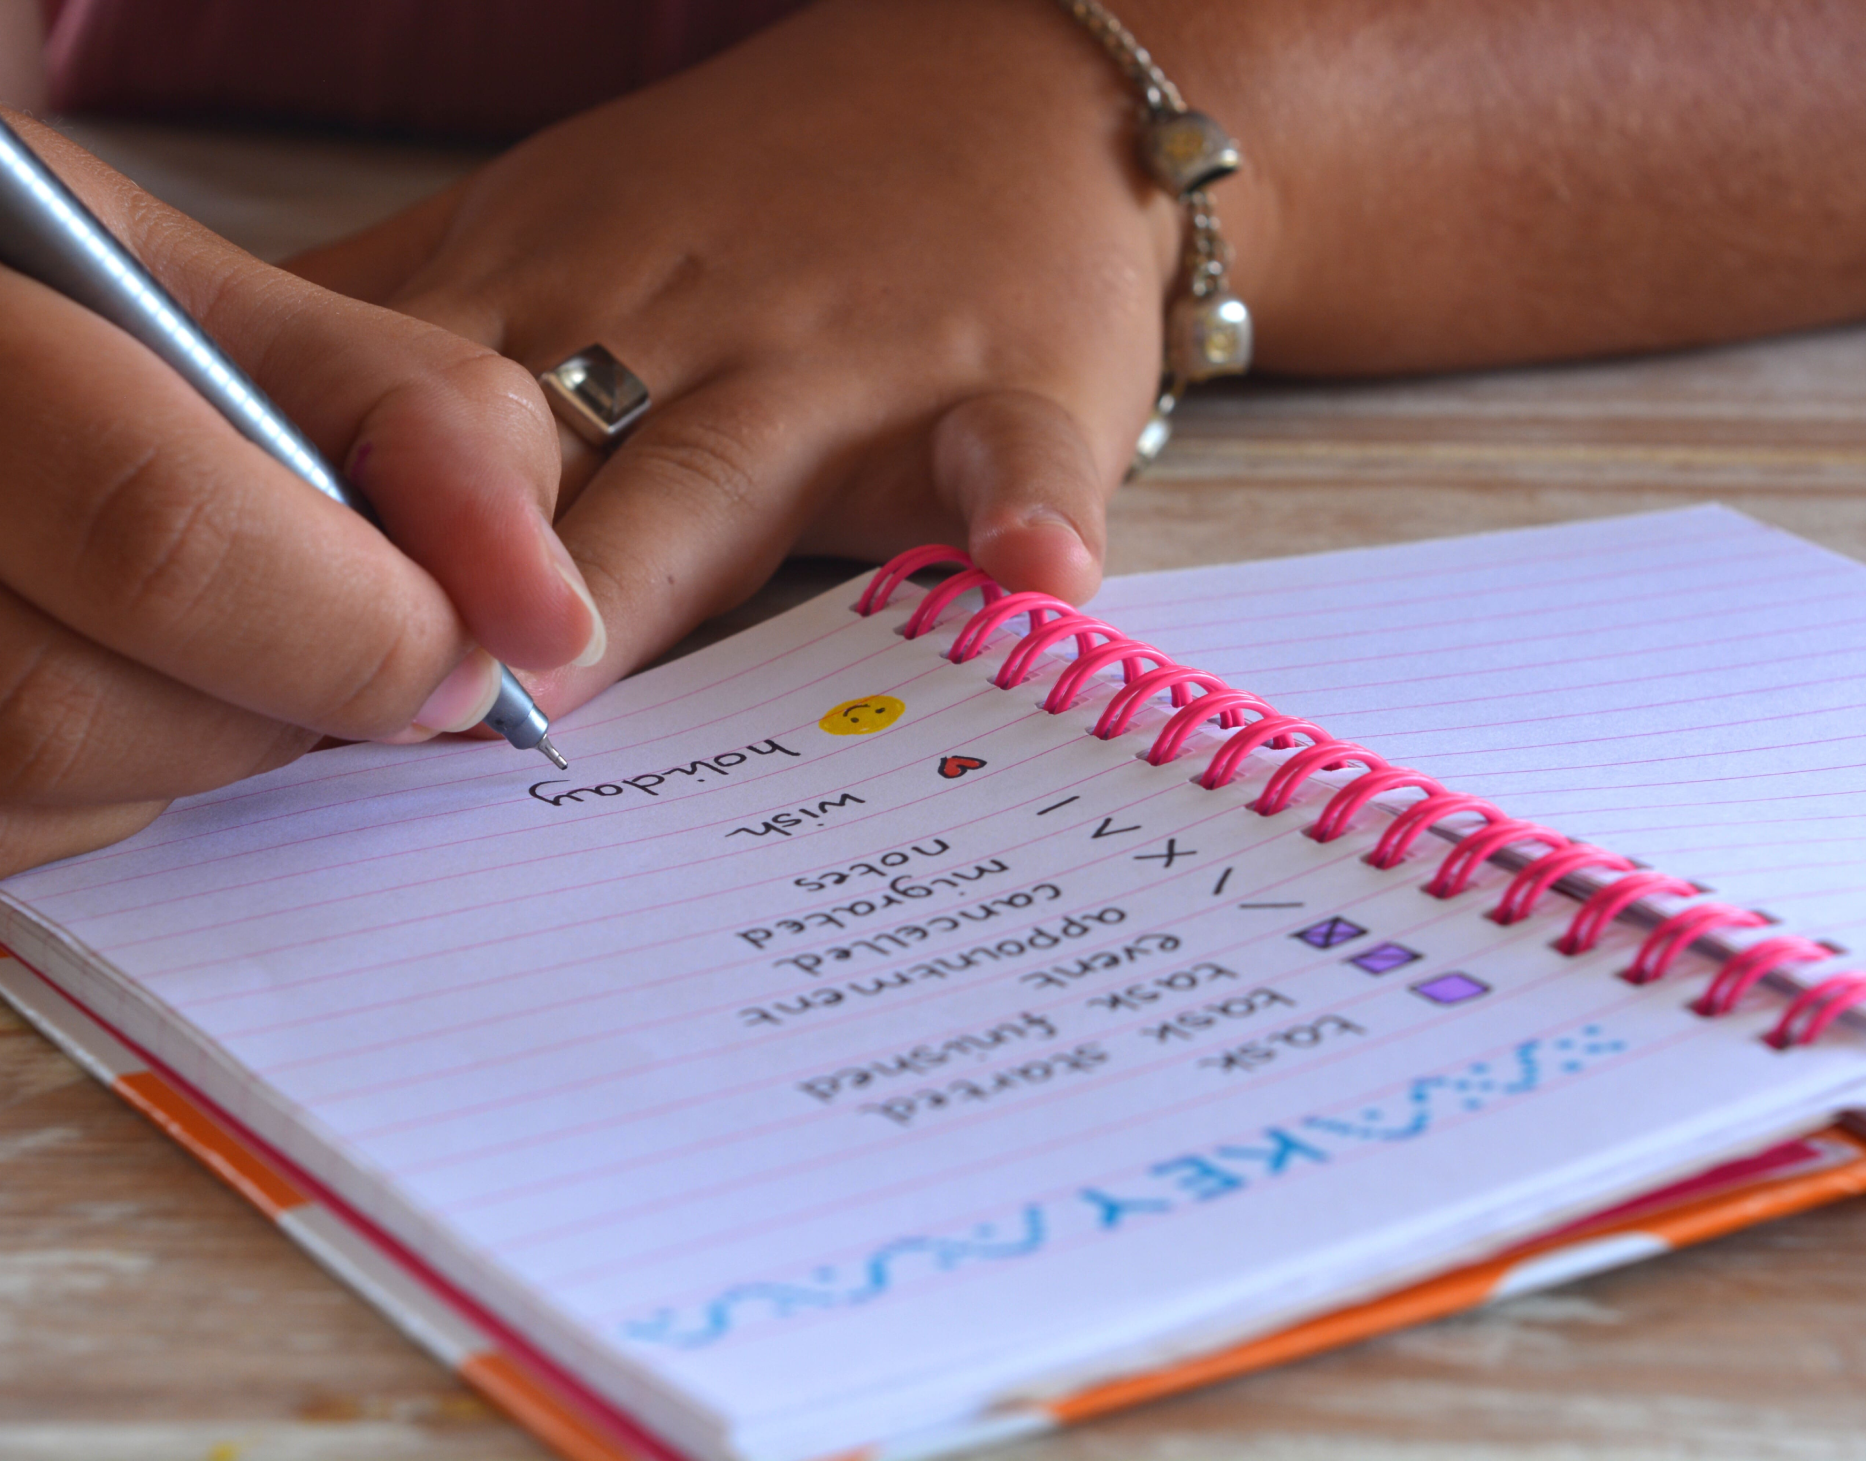 KEY
task
task started
task finished
event
appointment
x cancelled
> migrated
– notes
wish
holiday